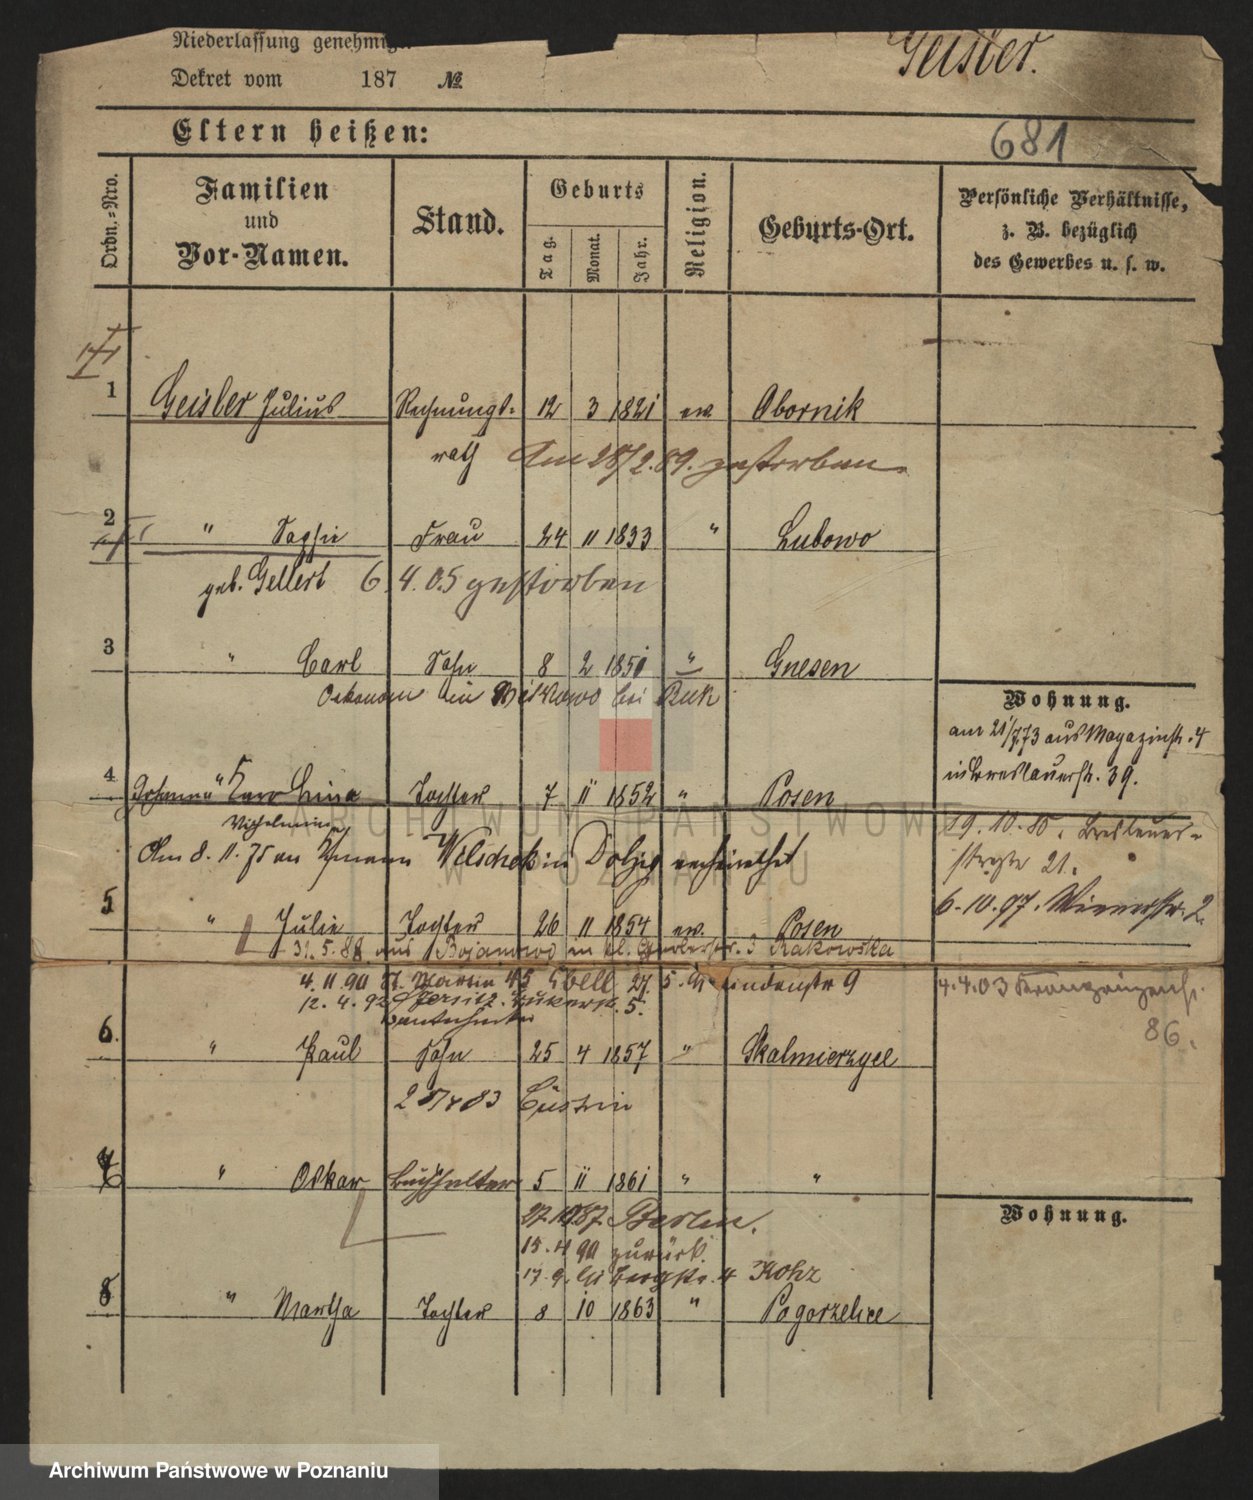 Niederlassung genehmigt
Dekret vom 187 №
Geisler.
Eltern heißen:
681
Ordn.-Nro.
Familien
und
Vor-Namen.
Stand.
Geburts
Tag.
Monat.
Jahr.
Religion.
Geburts-Ort.
Persönliche Verhältnisse,
z. B. bezüglich
des Gewerbes u. s. w.
1 Geisler Julius Rechnungs- 12 3 1821 ev. Obornik
rath Am 28/2.89. gestorben.
2 " Sophie Frau 24 11 1833 " Lubowo
geb. Gellert 6.4.05 gestorben
3 " Carl Sohn 8 2 1851 " Gnesen
Oekonom in bei Buk
Wohnung.
am 21/7.73 aus Magazinstr. 4
in Breslauerstr. 39.
4 Johanna " Lina Tochter 7 11 1852 " Posen
Wilhelmine
Am 8. 11. 75 an Welschek in Dolzig verheirathet
19.10.80. Breslauer-
straße 21.
5 " Julie Tochter 26 11 1854 ev. Posen
6.10.97. Wienerstr. 2.
31.5.88 aus Bojanowo in kl. Gerberstr. 3 Rakowska
4.11.90 St. Martin 45 27.5. Lindenstr 9
12.4.92 Jersitz. 5.
4.4.03 Kronprinzenstr.
86.
6. " Paul Sohn 25 4 1857 " Skalmierzyce
Cüstrin
7 " Oskar Buchhalter 5 11 1861 " "
27.10.87. Berlin.
15.4.90 zurück.
Bergstr. 4
Wohnung.
8 " Martha Tochter 8 10 1863 " Pogorzelice
ARCHIWUM PAŃSTWOWE
W POZNANIU
Archiwum Państwowe w Poznaniu